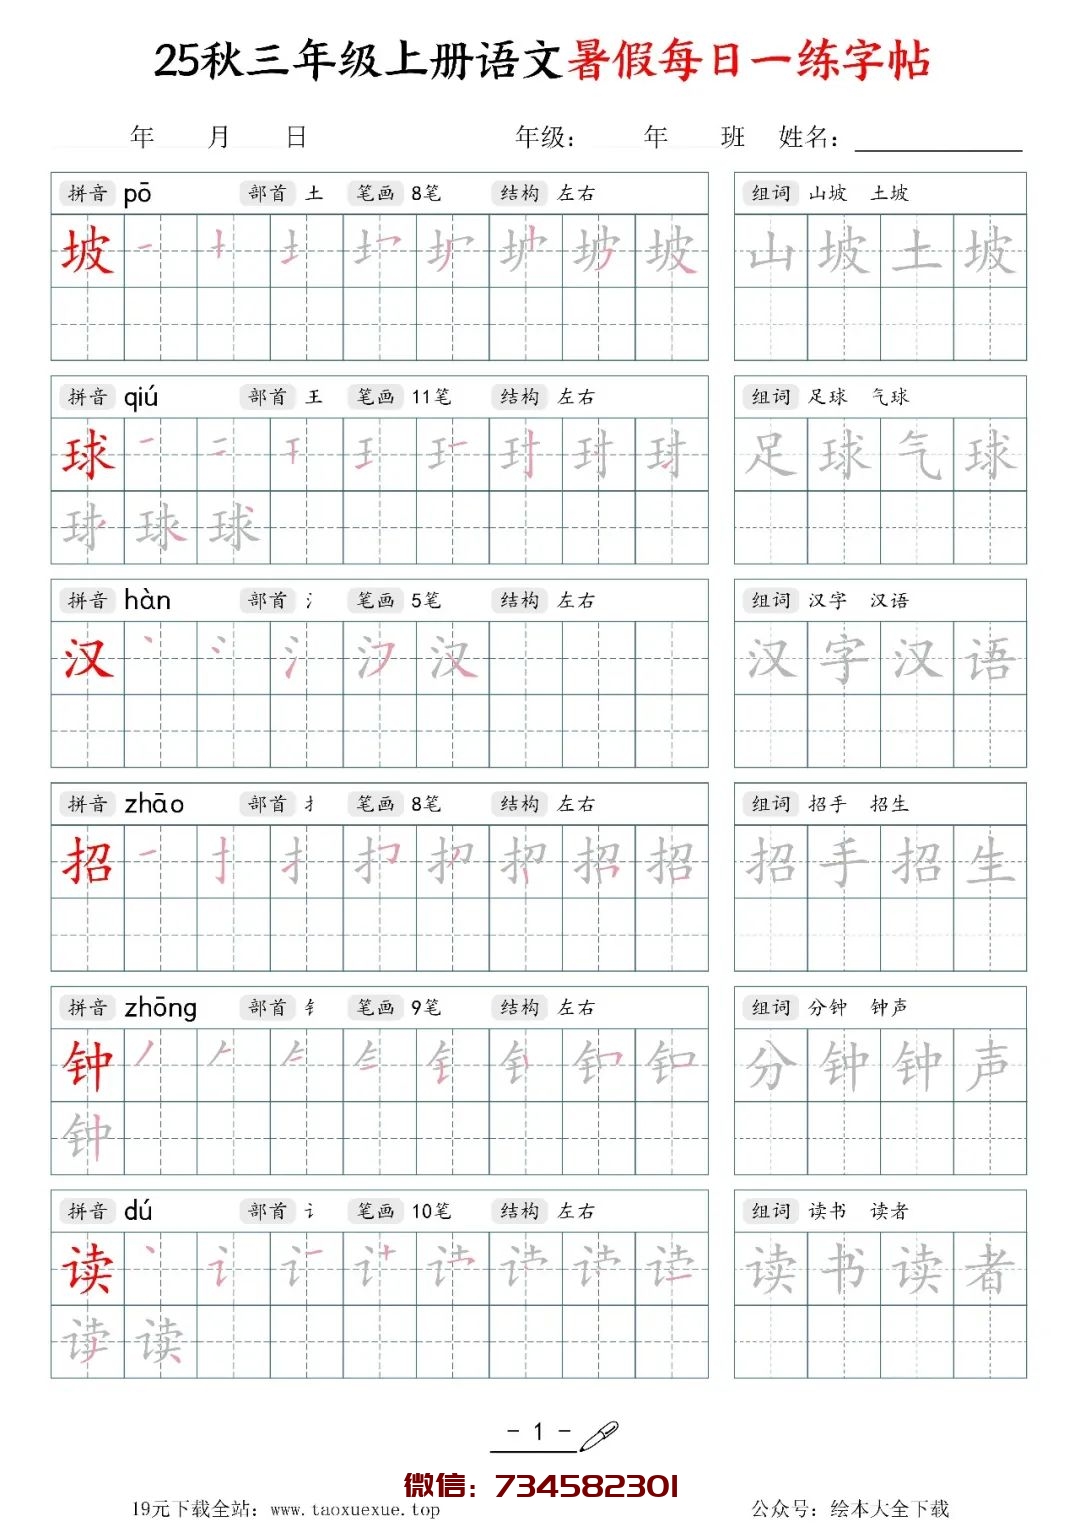 25秋三年级上册语文暑假每日一练字帖
年 月 日 年级： 年 班 姓名：
拼音 pō 部首 土 笔画 8笔 结构 左右 组词 山坡 土坡
坡 坡 山 坡 土 坡
拼音 qiú 部首 王 笔画 11笔 结构 左右 组词 足球 气球
球 足 球 气 球
球
拼音 hàn 部首 氵 笔画 5笔 结构 左右 组词 汉字 汉语
汉 汉 汉 字 汉 语
拼音 zhāo 部首 扌 笔画 8笔 结构 左右 组词 招手 招生
招 招 招 手 招 生
拼音 zhōng 部首 钅 笔画 9笔 结构 左右 组词 分钟 钟声
钟 分 钟 钟 声
钟
拼音 dú 部首 讠 笔画 10笔 结构 左右 组词 读书 读者
读 读 书 读 者
读
- 1 -
微信：734582301
19元下载全站：www.taoxuexue.top 公众号：绘本大全下载